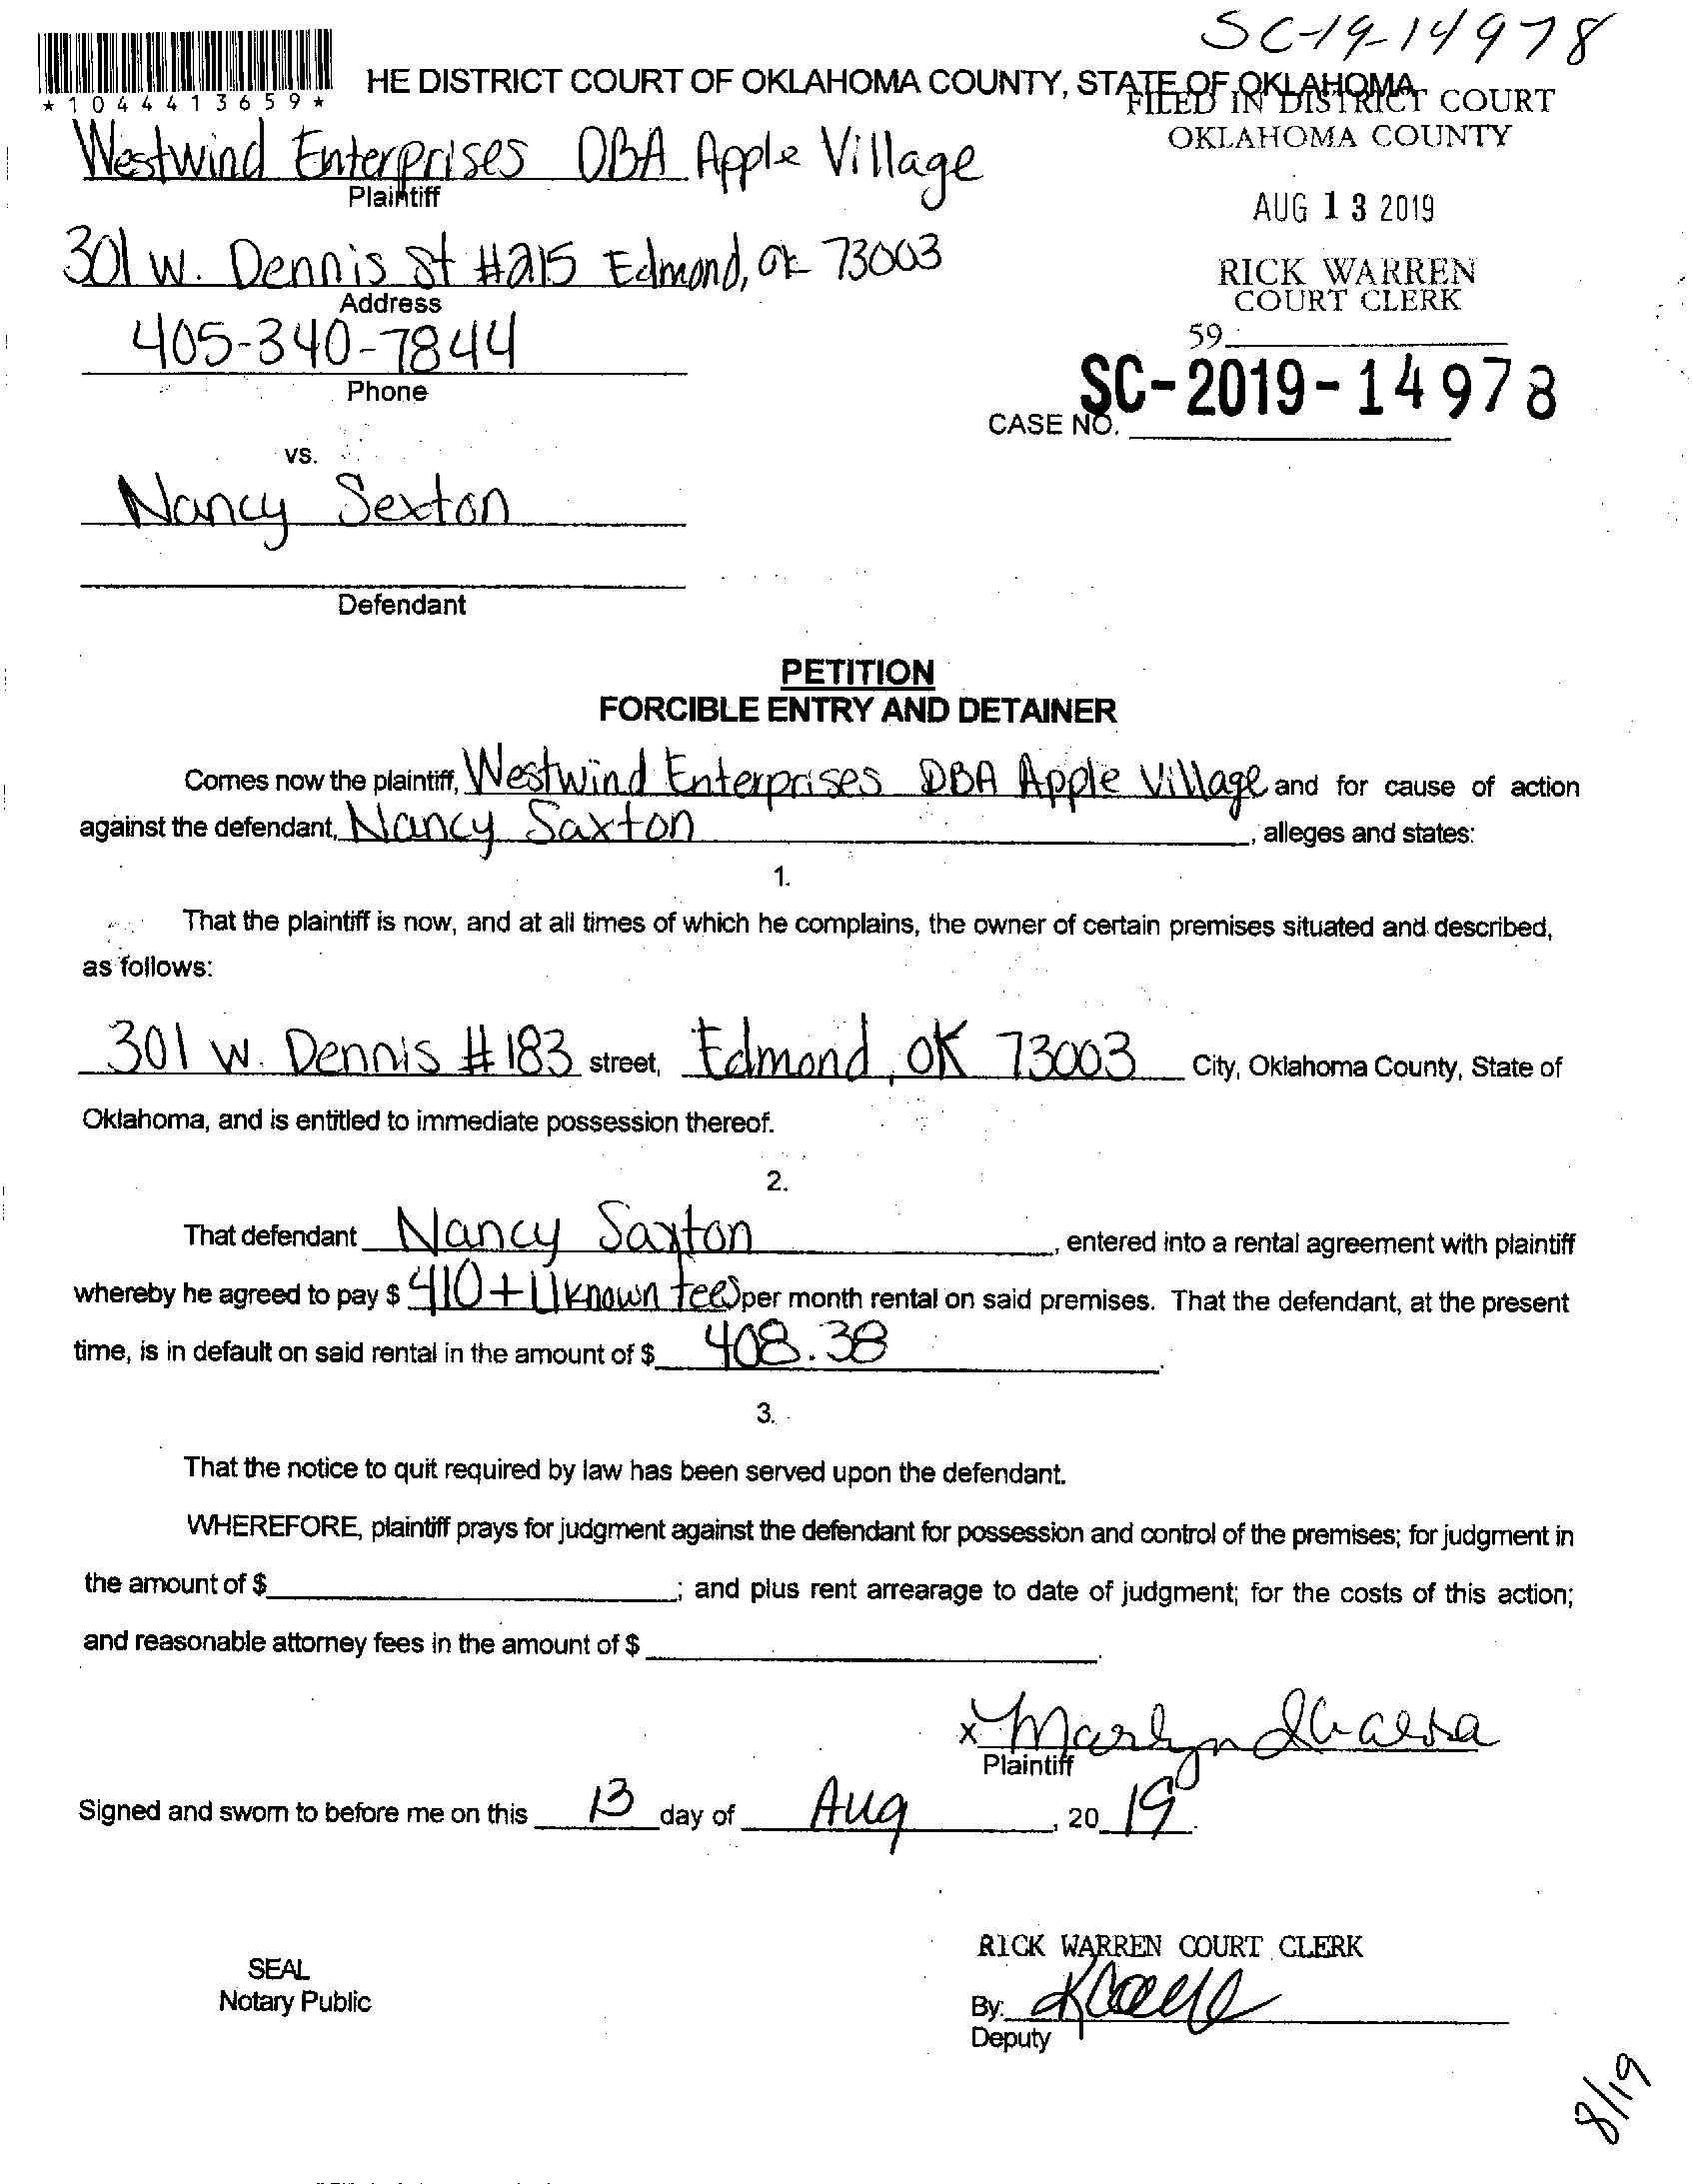 SC-19-14978
*1044413659*
HE DISTRICT COURT OF OKLAHOMA COUNTY, STATE OF OKLAHOMA
FILED IN DISTRICT COURT
OKLAHOMA COUNTY
Westwind Enterprises DBA Apple Village
Plaintiff
AUG 13 2019
301 W. Dennis St #215 Edmond, OK 73003
Address
RICK WARREN
COURT CLERK
405-340-7844
Phone
59
SC-2019-14978
CASE NO.
vs.
Nancy Sexton
Defendant
PETITION
FORCIBLE ENTRY AND DETAINER
Comes now the plaintiff, Westwind Enterprises DBA Apple Village and for cause of action
against the defendant, Nancy Saxton, alleges and states:
1.
That the plaintiff is now, and at all times of which he complains, the owner of certain premises situated and described,
as follows:
301 W. Dennis #183 street, Edmond, OK 73003 City, Oklahoma County, State of
Oklahoma, and is entitled to immediate possession thereof.
2.
That defendant Nancy Saxton, entered into a rental agreement with plaintiff
whereby he agreed to pay $ 410 + Uknown fees per month rental on said premises. That the defendant, at the present
time, is in default on said rental in the amount of $ 408.38.
3.
That the notice to quit required by law has been served upon the defendant.
WHEREFORE, plaintiff prays for judgment against the defendant for possession and control of the premises; for judgment in
the amount of $ ; and plus rent arrearage to date of judgment; for the costs of this action;
and reasonable attorney fees in the amount of $ .
x Marlyn
Plaintiff
Signed and sworn to before me on this 13 day of Aug, 2019.
RICK WARREN COURT CLERK
SEAL
Notary Public
By:
Deputy
8/19